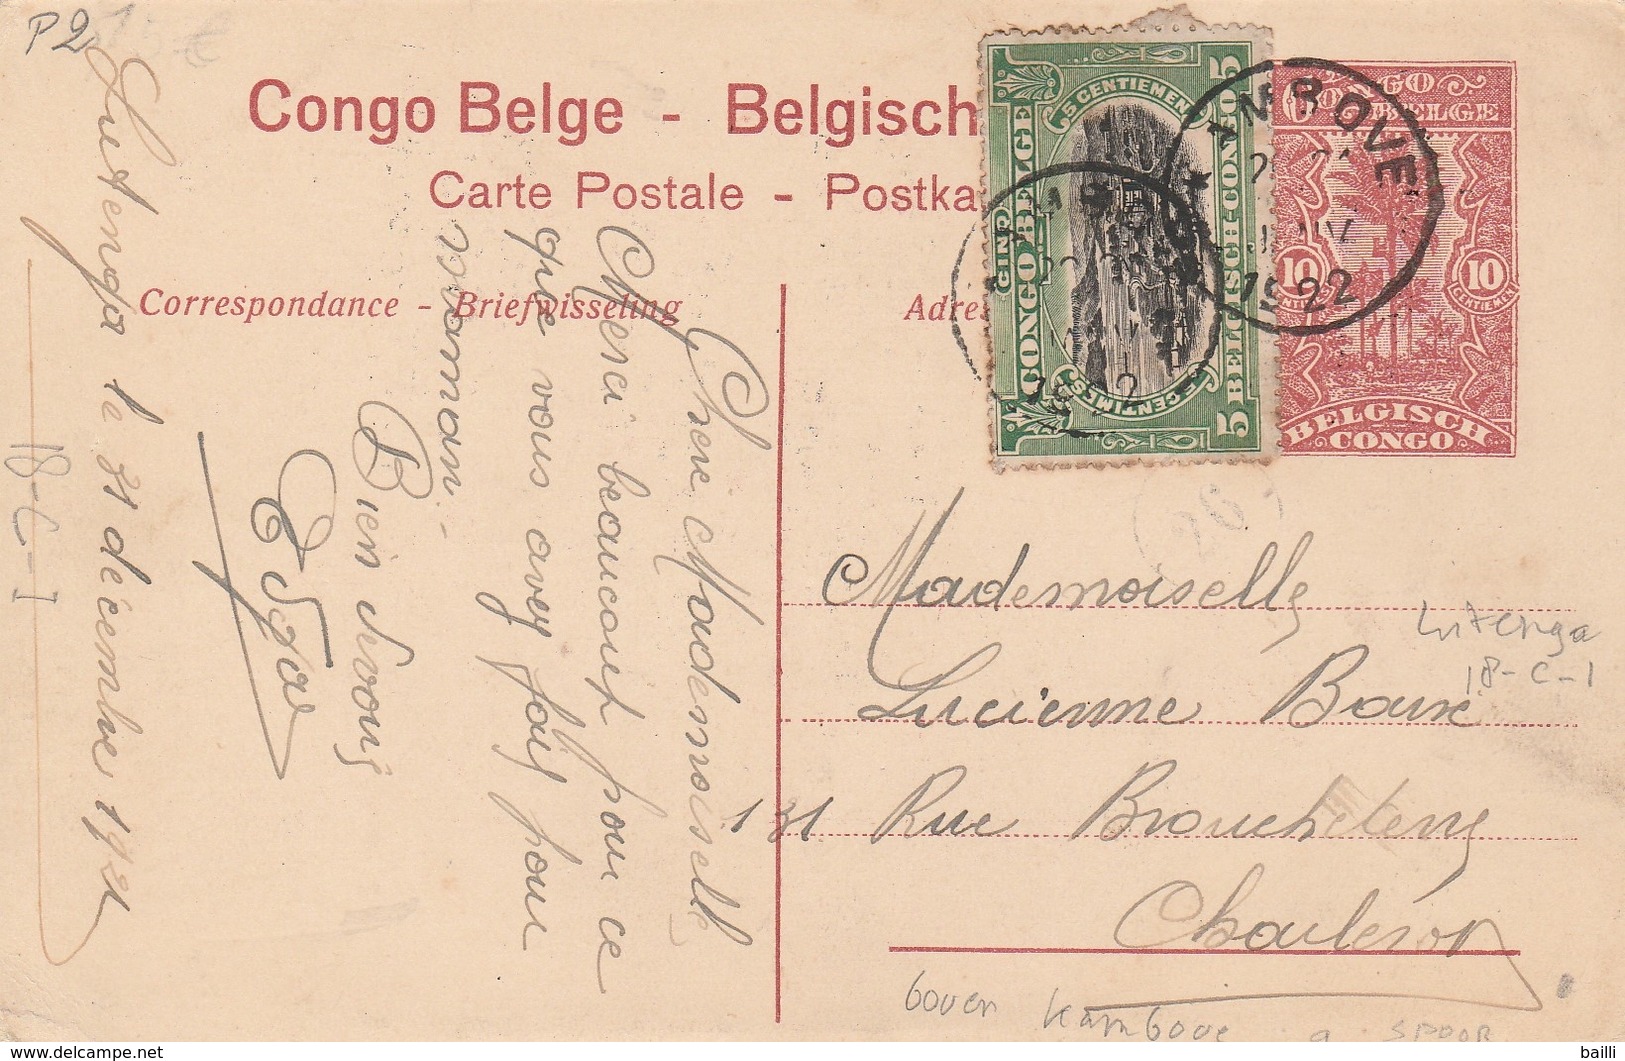 P2
Congo Belge - Belgisch
Carte Postale - Postka
Correspondance - Briefwisseling
Adre
CONGO BELGE
5 CENTIEMEN
5 CENTIMES
BELGISCH-CONGO
5
5
CONGO BELGE
10
10
CENTIEMEN
BELGISCH
CONGO
1922
Lutenga le 31 décembre 1921
18-C-I
Chère Mademoiselle
Merci beaucoup pour ce
que vous avez fait pour
maman.
Bien à vous
Edgar
Mademoiselle
Lucienne
131 Rue
Charleroi
Lutenga
18-C-1
boven Kambove
SPOOR
https://www.delcampe.net
bailli